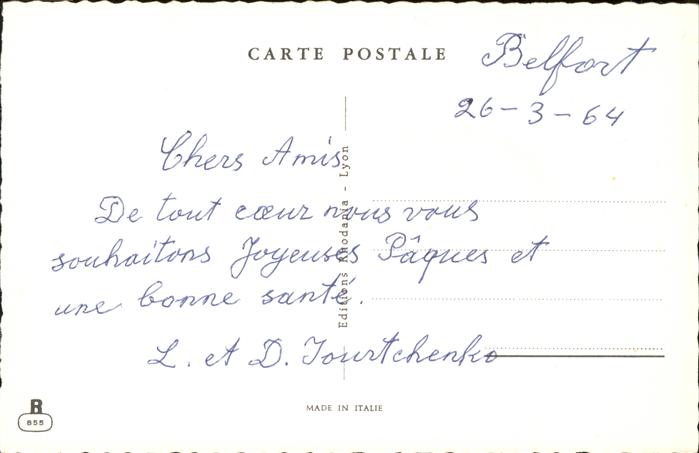 CARTE POSTALE
Belfort
26-3-64
Chers Amis
De tout cœur nous vous
souhaitons Joyeuses Pâques et
une bonne santé.
L. et D. Iourtchenko
Editions Rhodania - Lyon
MADE IN ITALIE
R
855